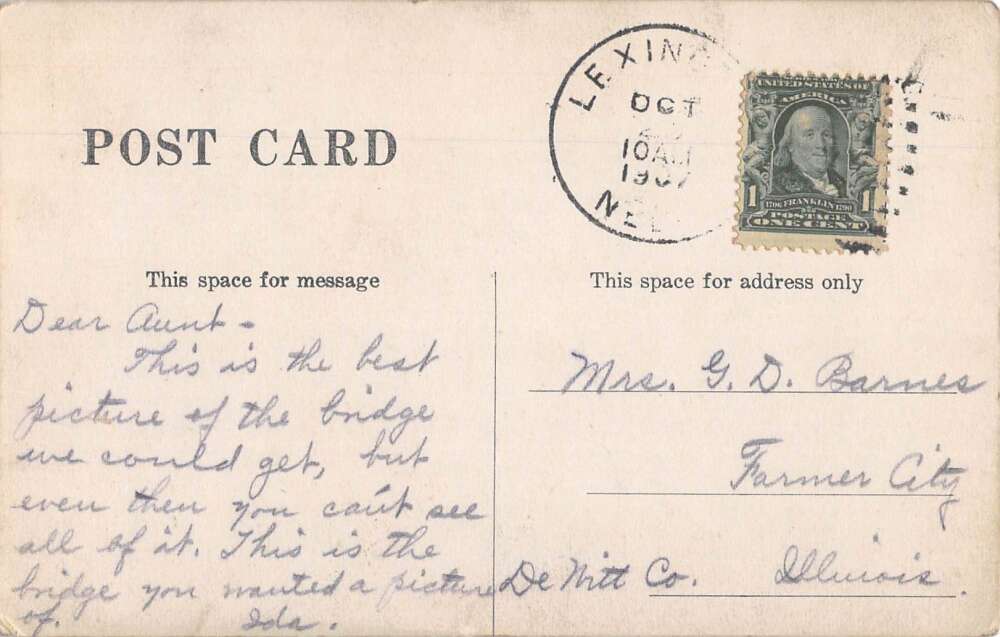 POST CARD
LEXING
OCT
10 AM
1907
NEB
UNITED STATES OF
AMERICA
1 1
1706 FRANKLIN 1790
POSTAGE
ONE CENT
This space for message
Dear Aunt -
This is the best
picture of the bridge
we could get, but
even then you can't see
all of it. This is the
bridge you wanted a picture
of. Ida.
This space for address only
Mrs. G. D. Barnes
Farmer City
De Witt Co. Illinois.